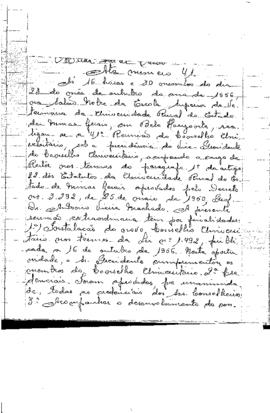 Ata número 41.
Às 16 horas e 30 minutos do dia
22 do mês de outubro do ano de 1956,
no Salão Nobre da Escola Superior de Ve-
terinária da Universidade Rural do Estado
de Minas Gerais, em Belo Horizonte, rea-
lizou-se a 41ª Reunião do Conselho Uni-
versitário, sob a presidência do vice-Presidente
do Conselho Universitário, ocupando o cargo de
Reitor nos termos do parágrafo 1º do artigo
22 dos Estatutos da Universidade Rural do Es-
tado de Minas Gerais aprovados pelo Decreto
nº 3.292, de 25 de maio de 1950, Prof.
Dr. Vieira Machado. A presente
reunião extraordinária tem por finalidades:
1º) Instalação do novo Conselho Universi-
tário, nos termos da Lei nº 1.492, publi-
cada a 16 de outubro de 1956. Nesta oportu-
nidade, o Sr. Presidente cumprimentou os
membros do Conselho Universitário. 2º
Foram aprovadas, por unanimida-
de, todas as dos Srs. Conselheiros
3º Acompanhar o desenvolvimento do